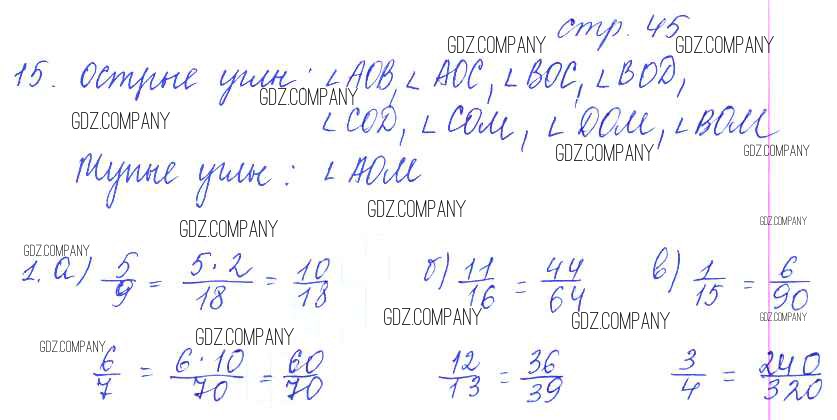 стр. 45
GDZ.COMPANY GDZ.COMPANY
15. Острые углы: ∠AOB, ∠AOC, ∠BOC, ∠BOD,
GDZ.COMPANY
GDZ.COMPANY
∠COD, ∠COM, ∠DOM, ∠BOM
GDZ.COMPANY GDZ.COMPANY
Тупые углы: ∠AOM
GDZ.COMPANY
GDZ.COMPANY GDZ.COMPANY
GDZ.COMPANY
1. а) 5/9 = 5·2/18 = 10/18 б) 11/16 = 44/64 в) 1/15 = 6/90
GDZ.COMPANY GDZ.COMPANY GDZ.COMPANY
GDZ.COMPANY GDZ.COMPANY
6/7 = 6·10/70 = 60/70 12/13 = 36/39 3/4 = 240/320